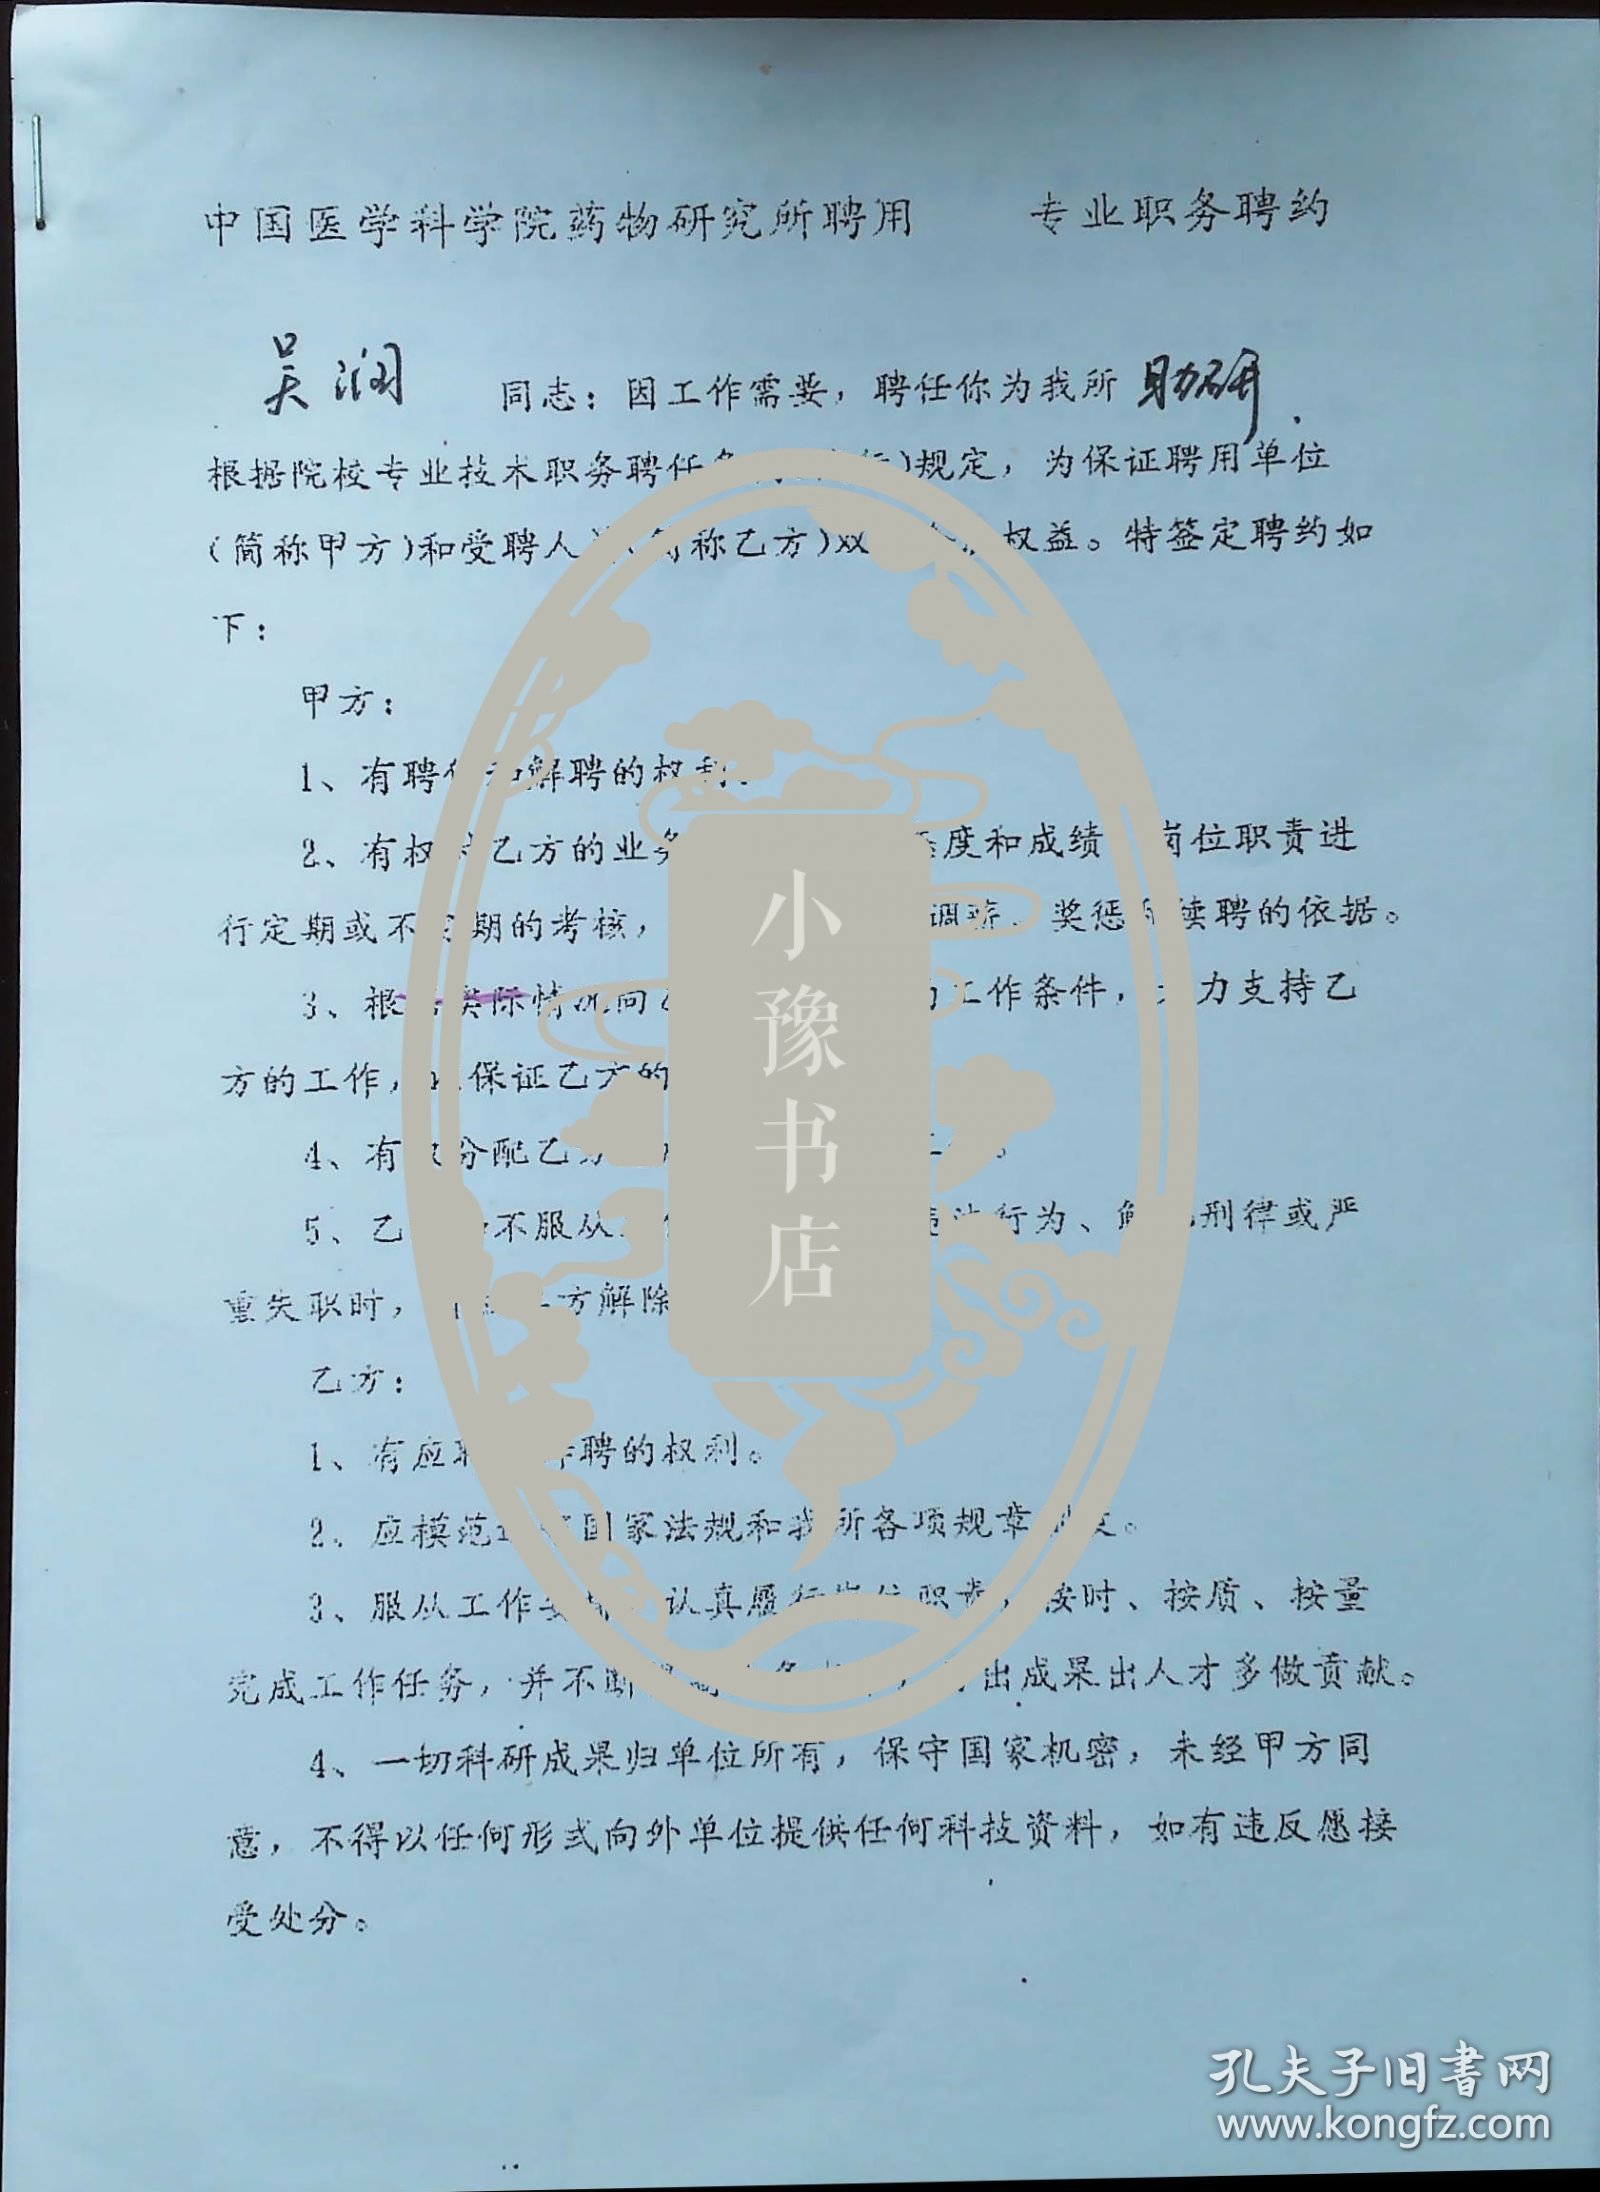 中国医学科学院药物研究所聘用 专业职务聘约
吴润 同志：因工作需要，聘任你为我所 助研.
根据院校专业技术职务聘任 规定，为保证聘用单位
（简称甲方）和受聘人 简称乙方）双 权益。特签定聘约如
下：
甲方：
1、有聘 解聘的权利。
2、有权 乙方的业务 态度和成绩 岗位职责进
行定期或不定期的考核， 调薪、奖惩 续聘的依据。
3、根 实际情况向乙 工作条件， 力支持乙
方的工作， 保证乙方的
4、有 分配乙方 。
5、乙 不服从 违法行为、触 刑律或严
重失职时， 方解除
乙方：
1、有应聘 聘的权利。
2、应模范 国家法规和我所各项规章 。
3、服从工作 认真履行岗位职责，按时、按质、按量
完成工作任务，并不断 出成果出人才多做贡献。
4、一切科研成果归单位所有，保守国家机密，未经甲方同
意，不得以任何形式向外单位提供任何科技资料，如有违反愿接
受处分。
小豫书店
孔夫子旧书网
www.kongfz.com